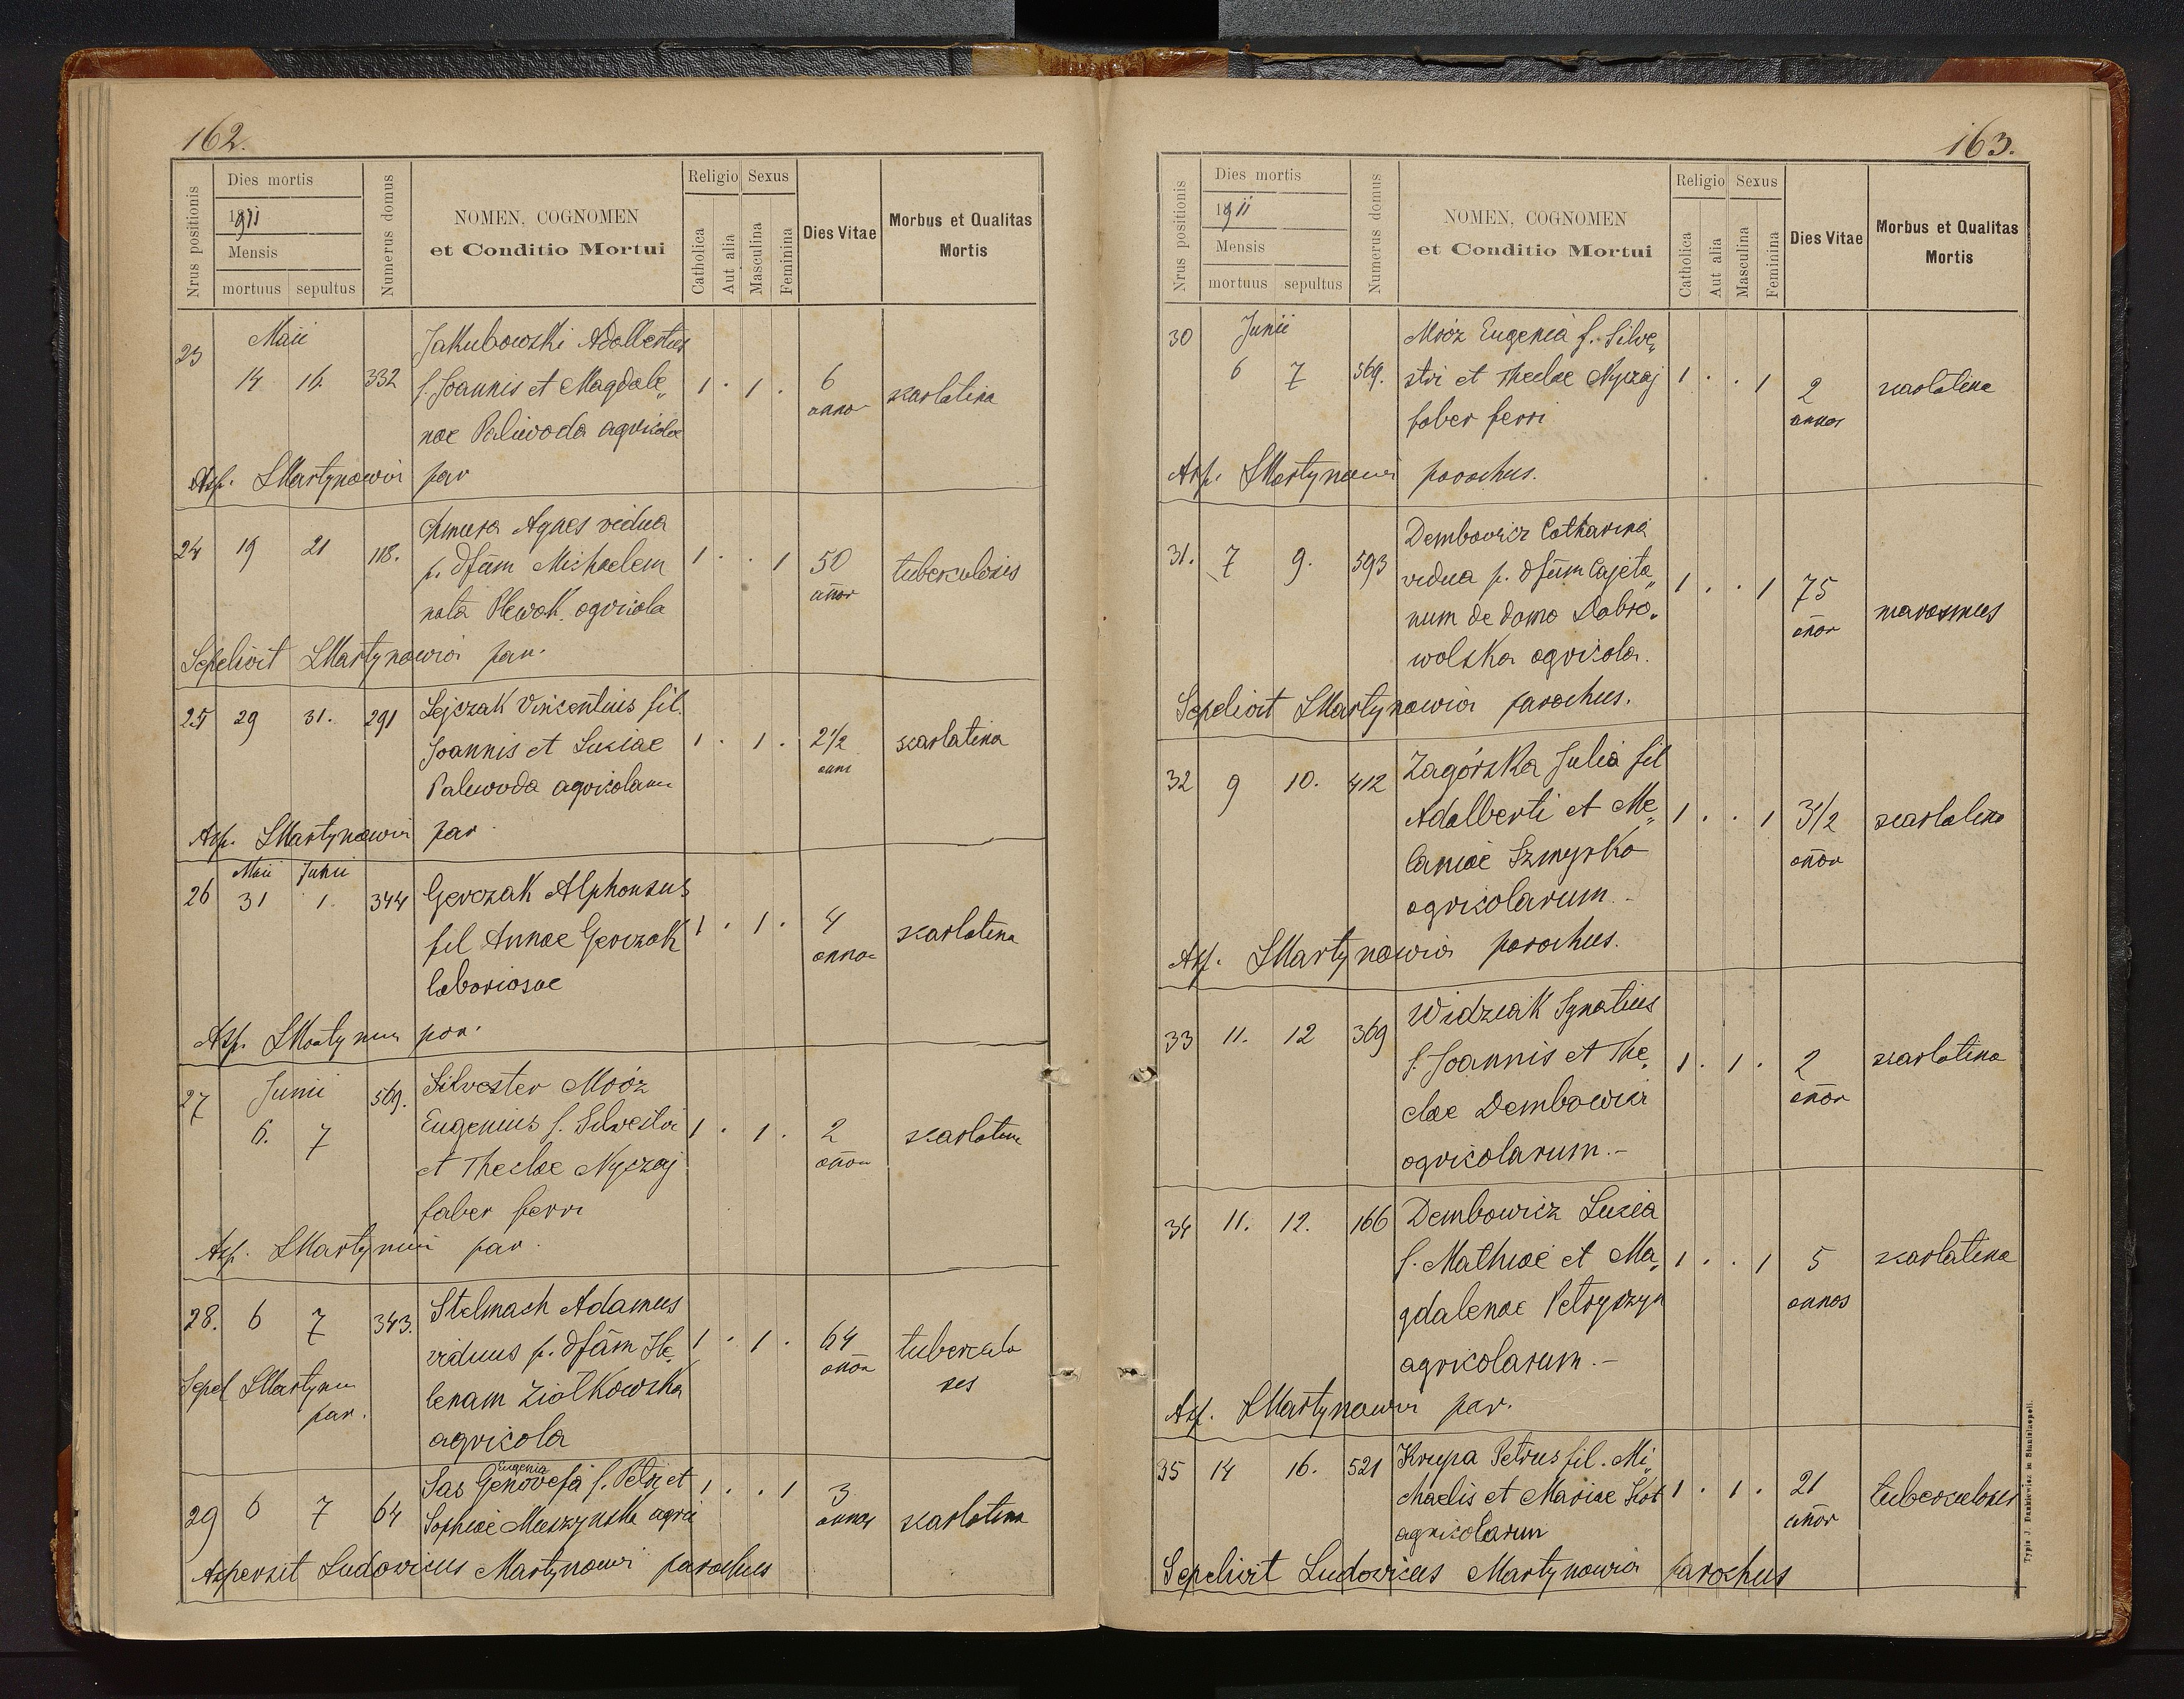 162.
Nrus positionis
Dies mortis
1911
Mensis
mortuus sepultus
Numerus domus
NOMEN, COGNOMEN
et Conditio Mortui
Religio Sexus
Catholica
Aut alia
Masculina
Feminina
Dies Vitae
Morbus et Qualitas
Mortis
23 Maii Jakubowski Adalbertus
14 16 332 f. Joannis et Magdale„ 1 . 1 . 6 scarlatina
nae Paliwoda agricolae annor
Asp. LMartynowicz par
Chmura Agnes vidua
24 19 21 118. p. dfūm Michaelem 1 . . 1 50 tuberculosis
nata Plewak agricola añor
Sepelivit LMartynowicz par.
25 29 31. 291 Lejczak Vincentius fil.
Joannis et Luciae 1 . 1 . 2½ scarlatina
Paliwoda agricolarum anni
Asp. LMartynowicz par
Maii Junii
26 31 1. 344 Gerczak Alphonsus
fil Annae Gerczak 1 . 1 . 4 scarlatina
laboriosae annor
Asp. LMartynow par.
27 Junii 569. Silvester Moóz
6. 7 Eugenius f. Silvestri 1 . 1 . 2 scarlatina
et Theclae Nyczaj añor
faber ferri
Asp. LMartynowi par.
28. 6 7 343. Stelmach Adamus
viduus p. dfām He„ 1 . 1 . 64 tuberculo
lenam Ziołkowska añor ses
Sepel LMartynow
par.
agricola
Eugenia
Sas Genovefa f. Petri et 1 . . 1 3
29 6 7 64 Sophiae Muszyńska agric annor scarlatina
Aspersit Ludovicus Martynowi parochus
163.
Nrus positionis
Dies mortis
1911
Mensis
mortuus sepultus
Numerus domus
NOMEN, COGNOMEN
et Conditio Mortui
Religio Sexus
Catholica
Aut alia
Masculina
Feminina
Dies Vitae
Morbus et Qualitas
Mortis
30 Junii Moóz Eugenia f. Silve„
6 7 569. stri et Theclae Nyczaj 1 . . 1 2 scarlatina
faber ferri annos
Asp. LMartynowi parochus.
Dembowicz Catharina
31. 7 9. 593 vidua p. dfūm Cajeta„ 1 . . 1 75 marasmus
num de domo Dobro„ añor
wolska agricola.
Sepelivit LMartynowicz parochus.
Zagórska Julia fil
32 9 10. 412 Adalberti et Me„ 1 . . 1 3½ scarlatina
laniae Szmyrko añor
agricolarum.
Asp. LMartynowicz parochus.
Widziak Ignatius
33 11. 12 369 f. Joannis et The„ 1 . 1 . 2 scarlatina
clae Dembowicz añor
agricolarum.-
34 11. 12. 166 Dembowicz Lucia
f. Mathiae et Ma„ 1 . . 1 5 scarlatina
gdalenae Petryszyn annos
agricolarum.-
Asp. LMartynowi par.
35 14 16. 521 Krupa Petrus fil. Mi„
chaelis et Mariae Kot 1 . 1 . 21 tuberculoses
agricolarum añor
Sepelivit Ludovicus Martynowicz parochus
Typis J. Dankiewicz in Stanislaopoli.